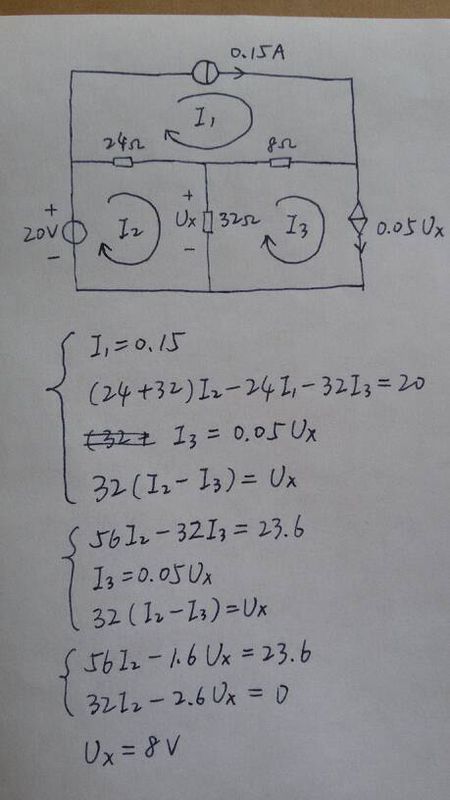 0.15A
I₁
24Ω
8Ω
+
20V
-
I₂
+
Ux
-
32Ω
I₃
0.05Ux
I₁=0.15
(24+32)I₂-24I₁-32I₃=20
I₃=0.05Ux
32(I₂-I₃)=Ux
56I₂-32I₃=23.6
I₃=0.05Ux
32(I₂-I₃)=Ux
56I₂-1.6Ux=23.6
32I₂-2.6Ux=0
Ux=8V